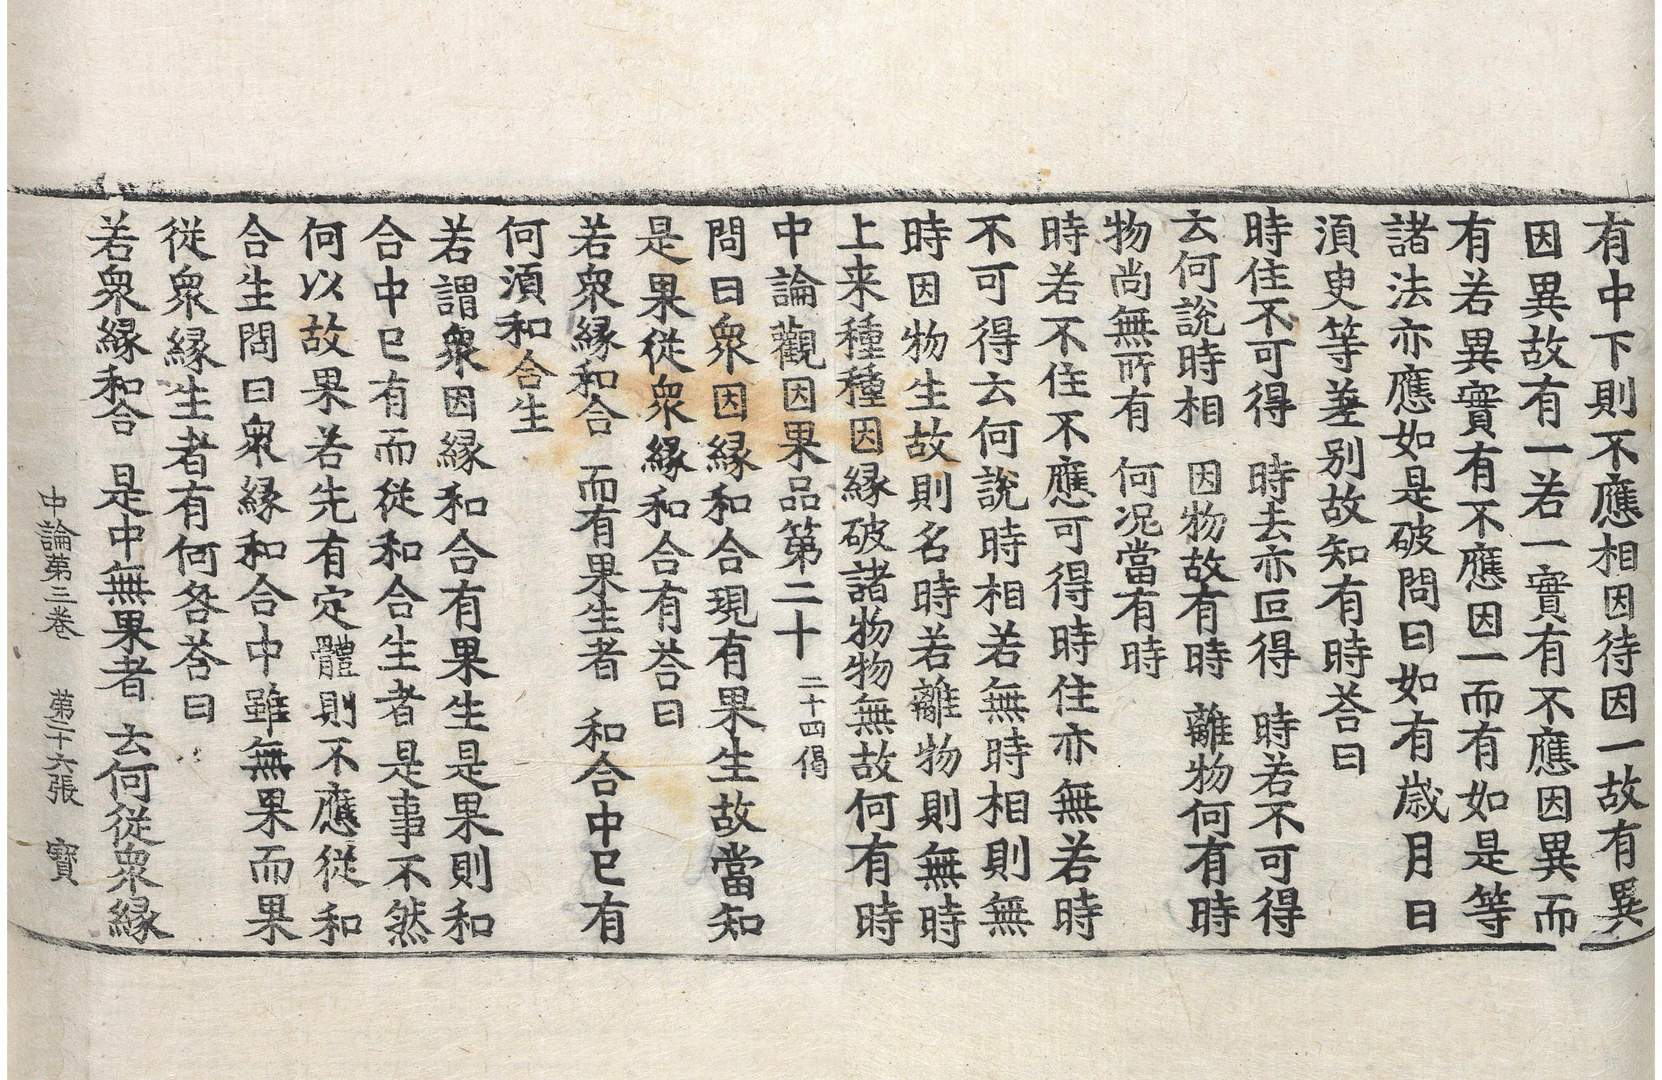 有中下則不應相因待因一故有異
因異故有一若一實有不應因異而
有若異實有不應因一而有如是等
諸法亦應如是破問曰如有歲月日
湏叟等差別故知有時荅曰
時住不可得 時去亦叵得 時若不可得
云何說時相 因物故有時 離物何有時
物尚無所有 何况當有時
時若不住不應可得時住亦無若時
不可得云何說時相若無時相則無
時因物生故則名時若離物則無時
上来種種因縁破諸物物無故何有時
中論觀因果品第二十 二十四偈
問曰衆因縁和合現有果生故當知
是果從衆縁和合有荅曰
若衆縁和合 而有果生者 和合中已有
何湏和合生
若謂衆因縁和合有果生是果則和
合中已有而從和合生者是事不然
何以故果若先有定體則不應從和
合生問曰衆縁和合中雖無果而果
從衆縁生者有何咎荅曰
若衆縁和合 是中無果者 云何從衆縁
中論第三卷 第二十六張 寳